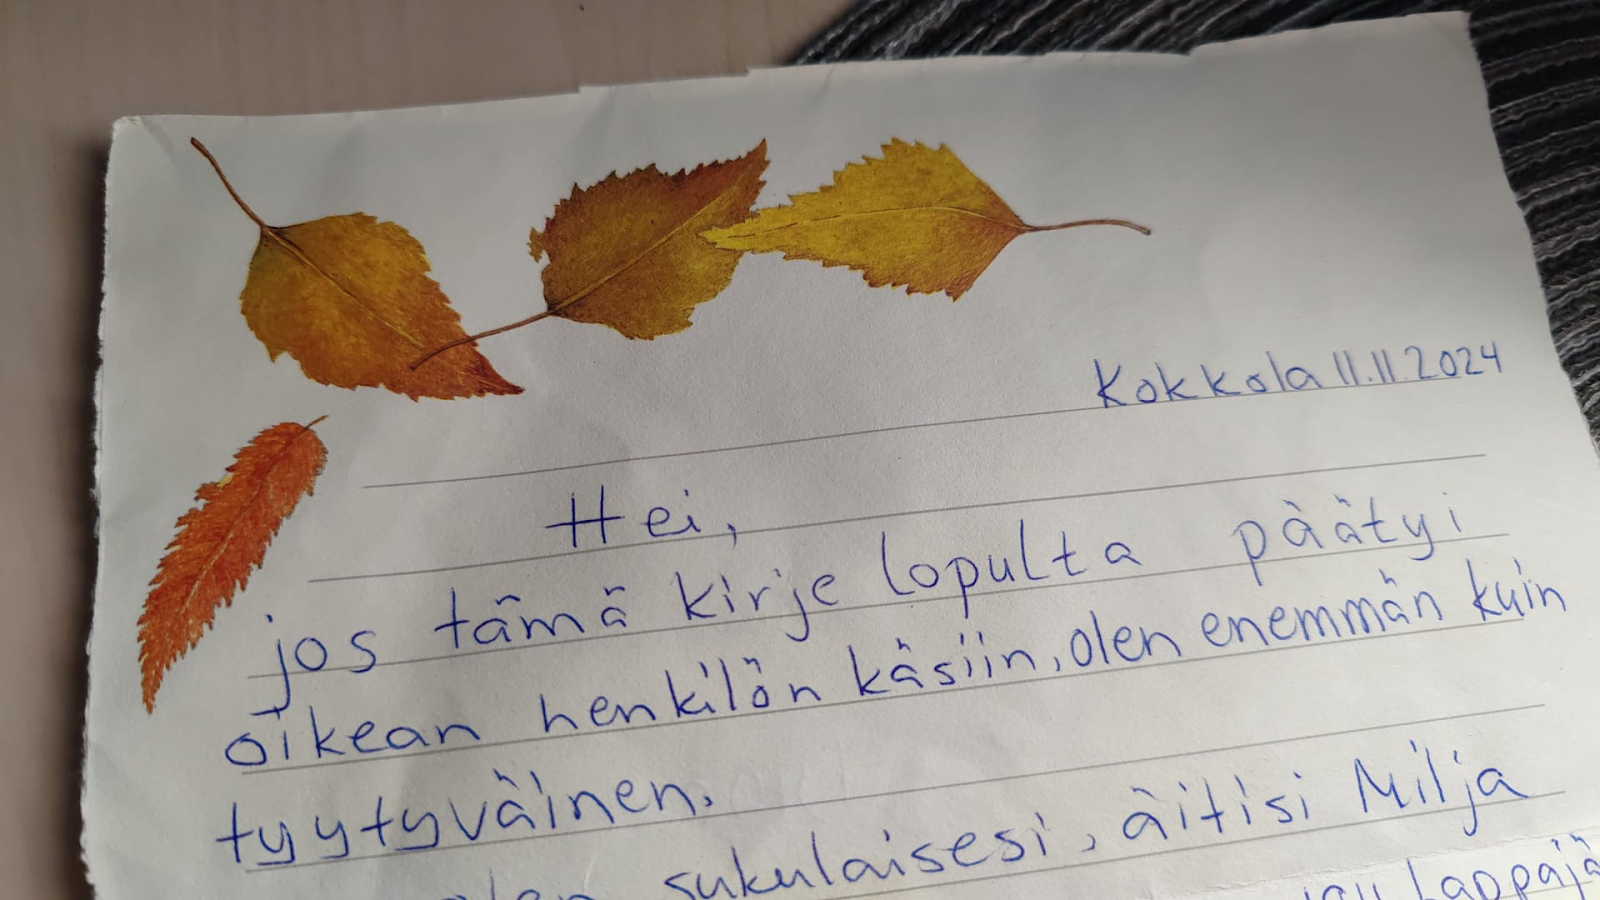 Kokkola 11.11.2024
Hei,
jos tämä kirje lopulta päätyi
oikean henkilön käsiin, olen enemmän kuin
tyytyväinen.
olen sukulaisesi, äitisi Milja